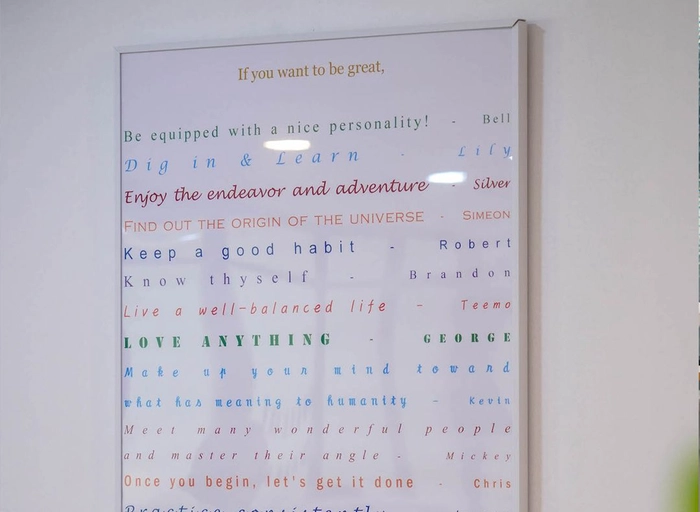 If you want to be great,
Be equipped with a nice personality! - Bell
Dig in & Learn - Lily
Enjoy the endeavor and adventure - Silver
FIND OUT THE ORIGIN OF THE UNIVERSE - SIMEON
Keep a good habit - Robert
Know thyself - Brandon
Live a well-balanced life - Teemo
LOVE ANYTHING - GEORGE
Make up your mind toward
what has meaning to humanity - Kevin
Meet many wonderful people
and master their angle - Mickey
Once you begin, let's get it done - Chris
Practice consistently